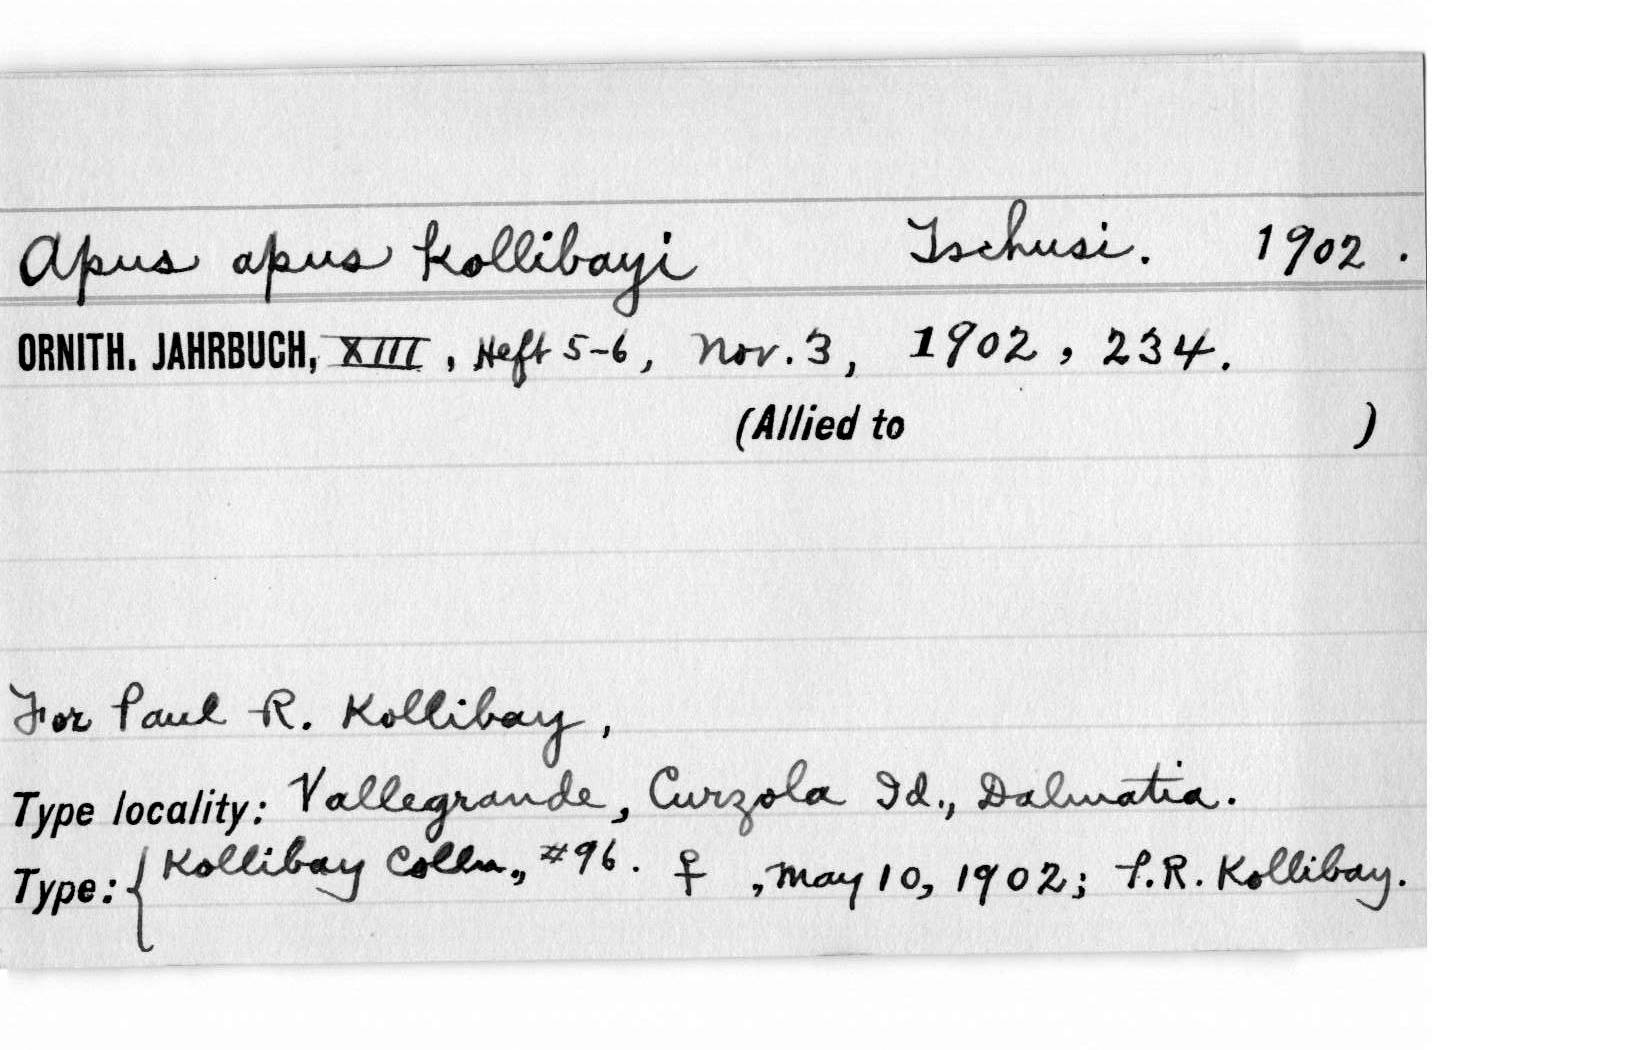 Apus apus kollibayi Tschusi. 1902.
ORNITH. JAHRBUCH, XIII, Heft 5-6, Nov. 3, 1902, 234.
(Allied to )
For Paul R. Kollibay,
Type locality: Vallegrande, Curzola Id., Dalmatia.
Type: { Kollibay Colln., #96. ♀, May 10, 1902; P.R. Kollibay.